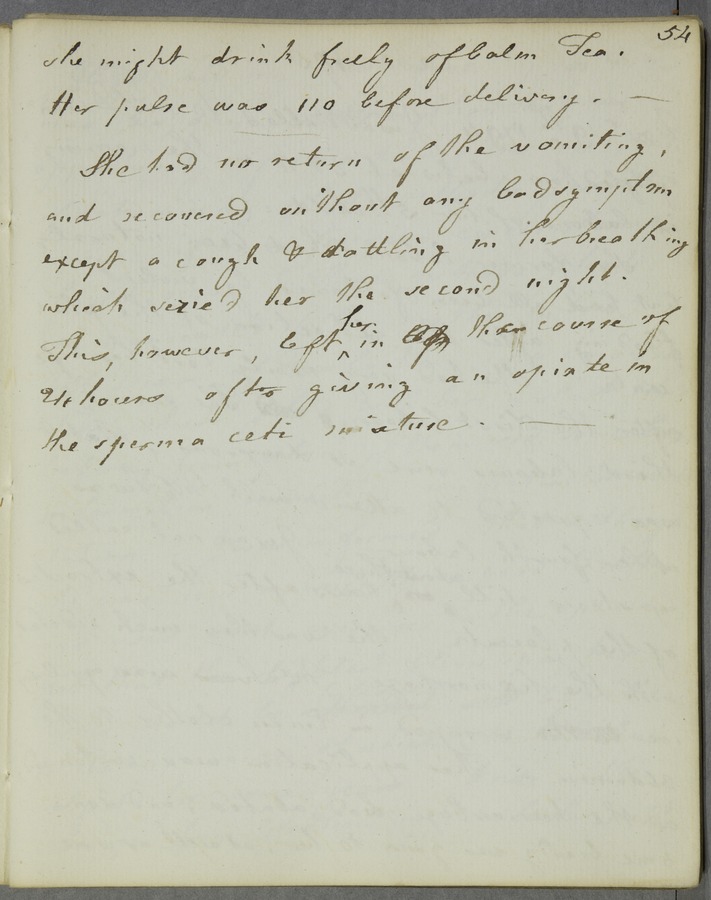 54
she might drink freely of balm Tea.
Her pulse was 110 before delivery. —
She had no return of the vomiting,
and recovered without any bad symptom
except a cough & rattling in her breathing
which seized her the second night.
This, however, left her in the course of
24 hours after giving an opiate in
the sperma ceti mixture. —